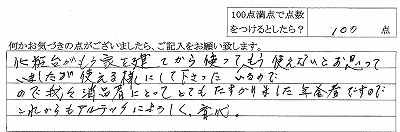 100点満点で点数
をつけるとしたら？ 100 点
何かお気づきの点がございましたら、ご記入をお願い致します。
化粧台がもう家を建てから使ってもう使えないとお思って
いましたが使える様にして下さった ので
ので我々消費者にとってとてもたすかりました年金者ですので
これからもアルテックによろしく。